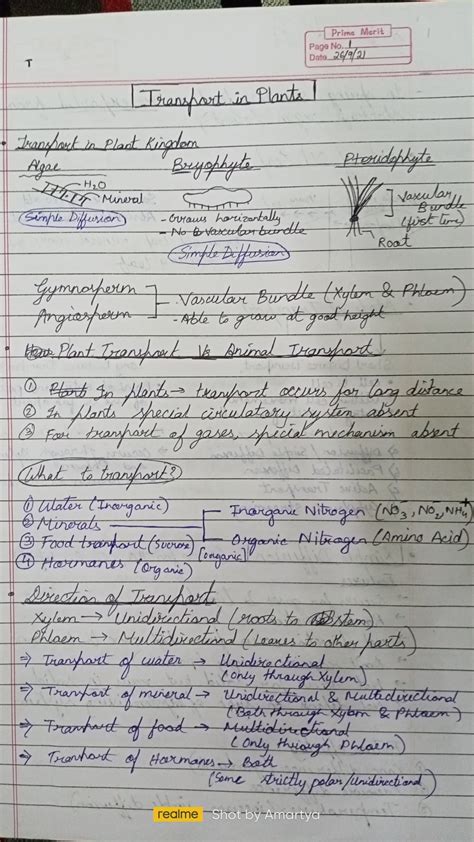 Prime Merit
Page No. 1
Date 26/9/21
T
Transport in Plants
• Transport in Plant Kingdom
Algae Bryophyte Pteridophyte
H2O
Mineral
Simple Diffusion
- Grows horizontally
- No Vascular bundle
Simple Diffusion
Vascular Bundle (first time)
Root
Gymnosperm
Angiosperm
- Vascular Bundle (Xylem & Phloem)
- Able to grow at good height
Plant Transport Vs Animal Transport
① In plants → transport occurs for long distance
② In plants special circulatory system absent
③ For transport of gases, special mechanism absent
What to transport?
① Water (Inorganic)
② Minerals
Inorganic Nitrogen (NO3-, NO2-, NH4+)
Organic Nitrogen (Amino Acid)
③ Food transport (sucrose) [organic]
④ Hormones (Organic)
• Direction of Transport
Xylem → Unidirectional (roots to stem)
Phloem → Multidirectional (leaves to other parts)
⇒ Transport of water → Unidirectional
(Only through Xylem)
⇒ Transport of mineral → Unidirectional & Multidirectional
(Both through Xylem & Phloem)
⇒ Transport of food → Multidirectional
(Only through Phloem)
⇒ Transport of Hormones → Both
(Some strictly polar/Unidirectional)
realme Shot by Amartya